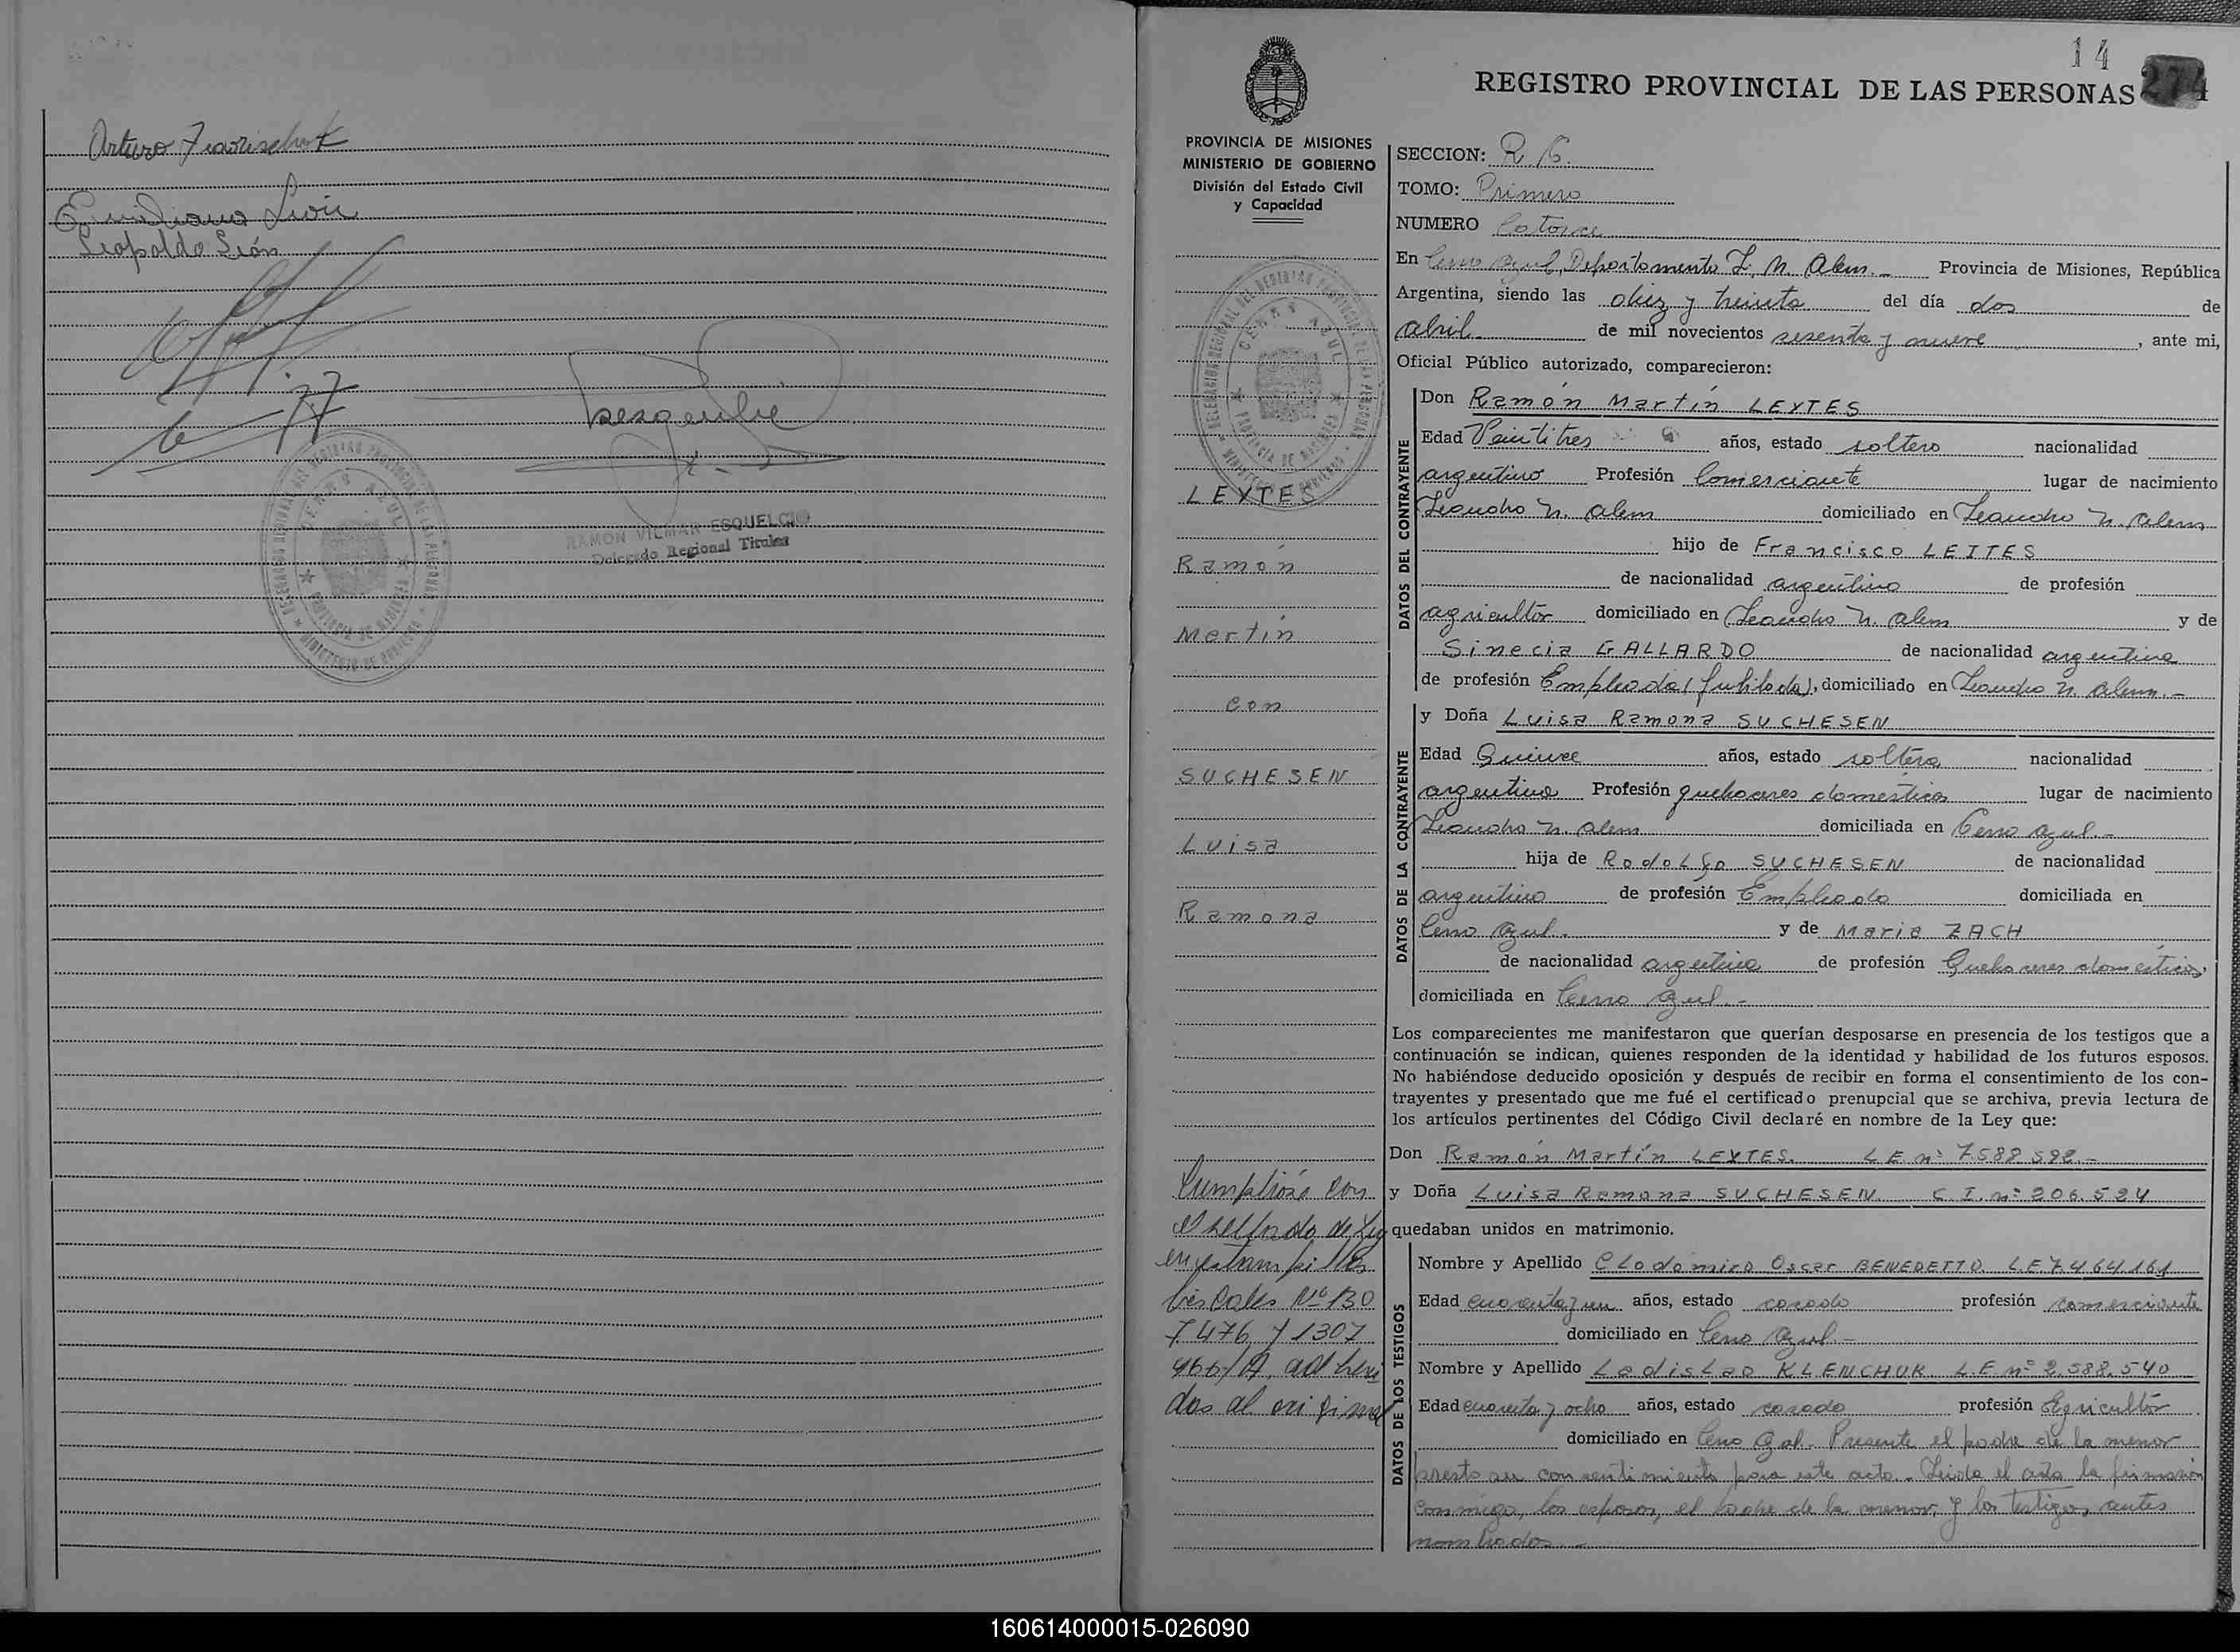 Arturo
Emiliano León
Leopoldo León
RAMON VILMAR ESQUELCIO
Delegado Regional Titular
14
274
REGISTRO PROVINCIAL DE LAS PERSONAS
PROVINCIA DE MISIONES
MINISTERIO DE GOBIERNO
División del Estado Civil
y Capacidad
LEYTES
Ramón
Martín
con
SUCHESEN
Luisa
Ramona
Cumplióse con
el sellado de Ley
en estampillas
fiscales Nº 130
7476 y 1307
466/A adheri
das al original
SECCION: R.C.
TOMO: Primero
NUMERO Catorce
En Cerro Azul, Departamento L. N. Alem.- Provincia de Misiones, República
Argentina, siendo las diez y treinta del día dos de
abril de mil novecientos sesenta y nueve, ante mi,
Oficial Público autorizado, comparecieron:
DATOS DEL CONTRAYENTE
Don Ramón Martín LEYTES
Edad Veintitres años, estado soltero nacionalidad
argentino Profesión Comerciante lugar de nacimiento
Leandro N. Alem domiciliado en Leandro N. Alem
hijo de Francisco LEITES
de nacionalidad argentino de profesión
agricultor domiciliado en Leandro N. Alem y de
Sinecia GALLARDO de nacionalidad argentina
de profesión Empleada (Jubilada), domiciliado en Leandro N. Alem.-
DATOS DE LA CONTRAYENTE
y Doña Luisa Ramona SUCHESEN
Edad Quince años, estado soltera nacionalidad
argentina Profesión quehaceres domésticos lugar de nacimiento
Leandro N. Alem domiciliada en Cerro Azul.-
hija de Rodolfo SUCHESEN de nacionalidad
argentino de profesión Empleado domiciliada en
Cerro Azul. y de Maria ZACH
de nacionalidad argentina de profesión Quehaceres domésticos,
domiciliada en Cerro Azul.-
Los comparecientes me manifestaron que querían desposarse en presencia de los testigos que a
continuación se indican, quienes responden de la identidad y habilidad de los futuros esposos.
No habiéndose deducido oposición y después de recibir en forma el consentimiento de los con-
trayentes y presentado que me fué el certificado prenupcial que se archiva, previa lectura de
los artículos pertinentes del Código Civil declaré en nombre de la Ley que:
Don Ramón Martín LEYTES. L E nº 7588592.-
y Doña Luisa Ramona SUCHESEN C I. nº 206.524
quedaban unidos en matrimonio.
DATOS DE LOS TESTIGOS
Nombre y Apellido Clodomiro Oscar BENEDETTO L.E.7.464.161
Edad cuarenta y un años, estado casado profesión comerciante
domiciliado en Cerro Azul.-
Nombre y Apellido Ladislao KLENCHUK L.E. nº 2.588.540
Edad cuarenta y ocho años, estado casado profesión Agricultor
domiciliado en Cerro Azul.- Presente el padre de la menor
presta su consentimiento para este acto.- Leida el acta la firmaron
conmigo, los esposos, el padre de la menor, y los testigos, antes
nombrados.-
160614000015-026090